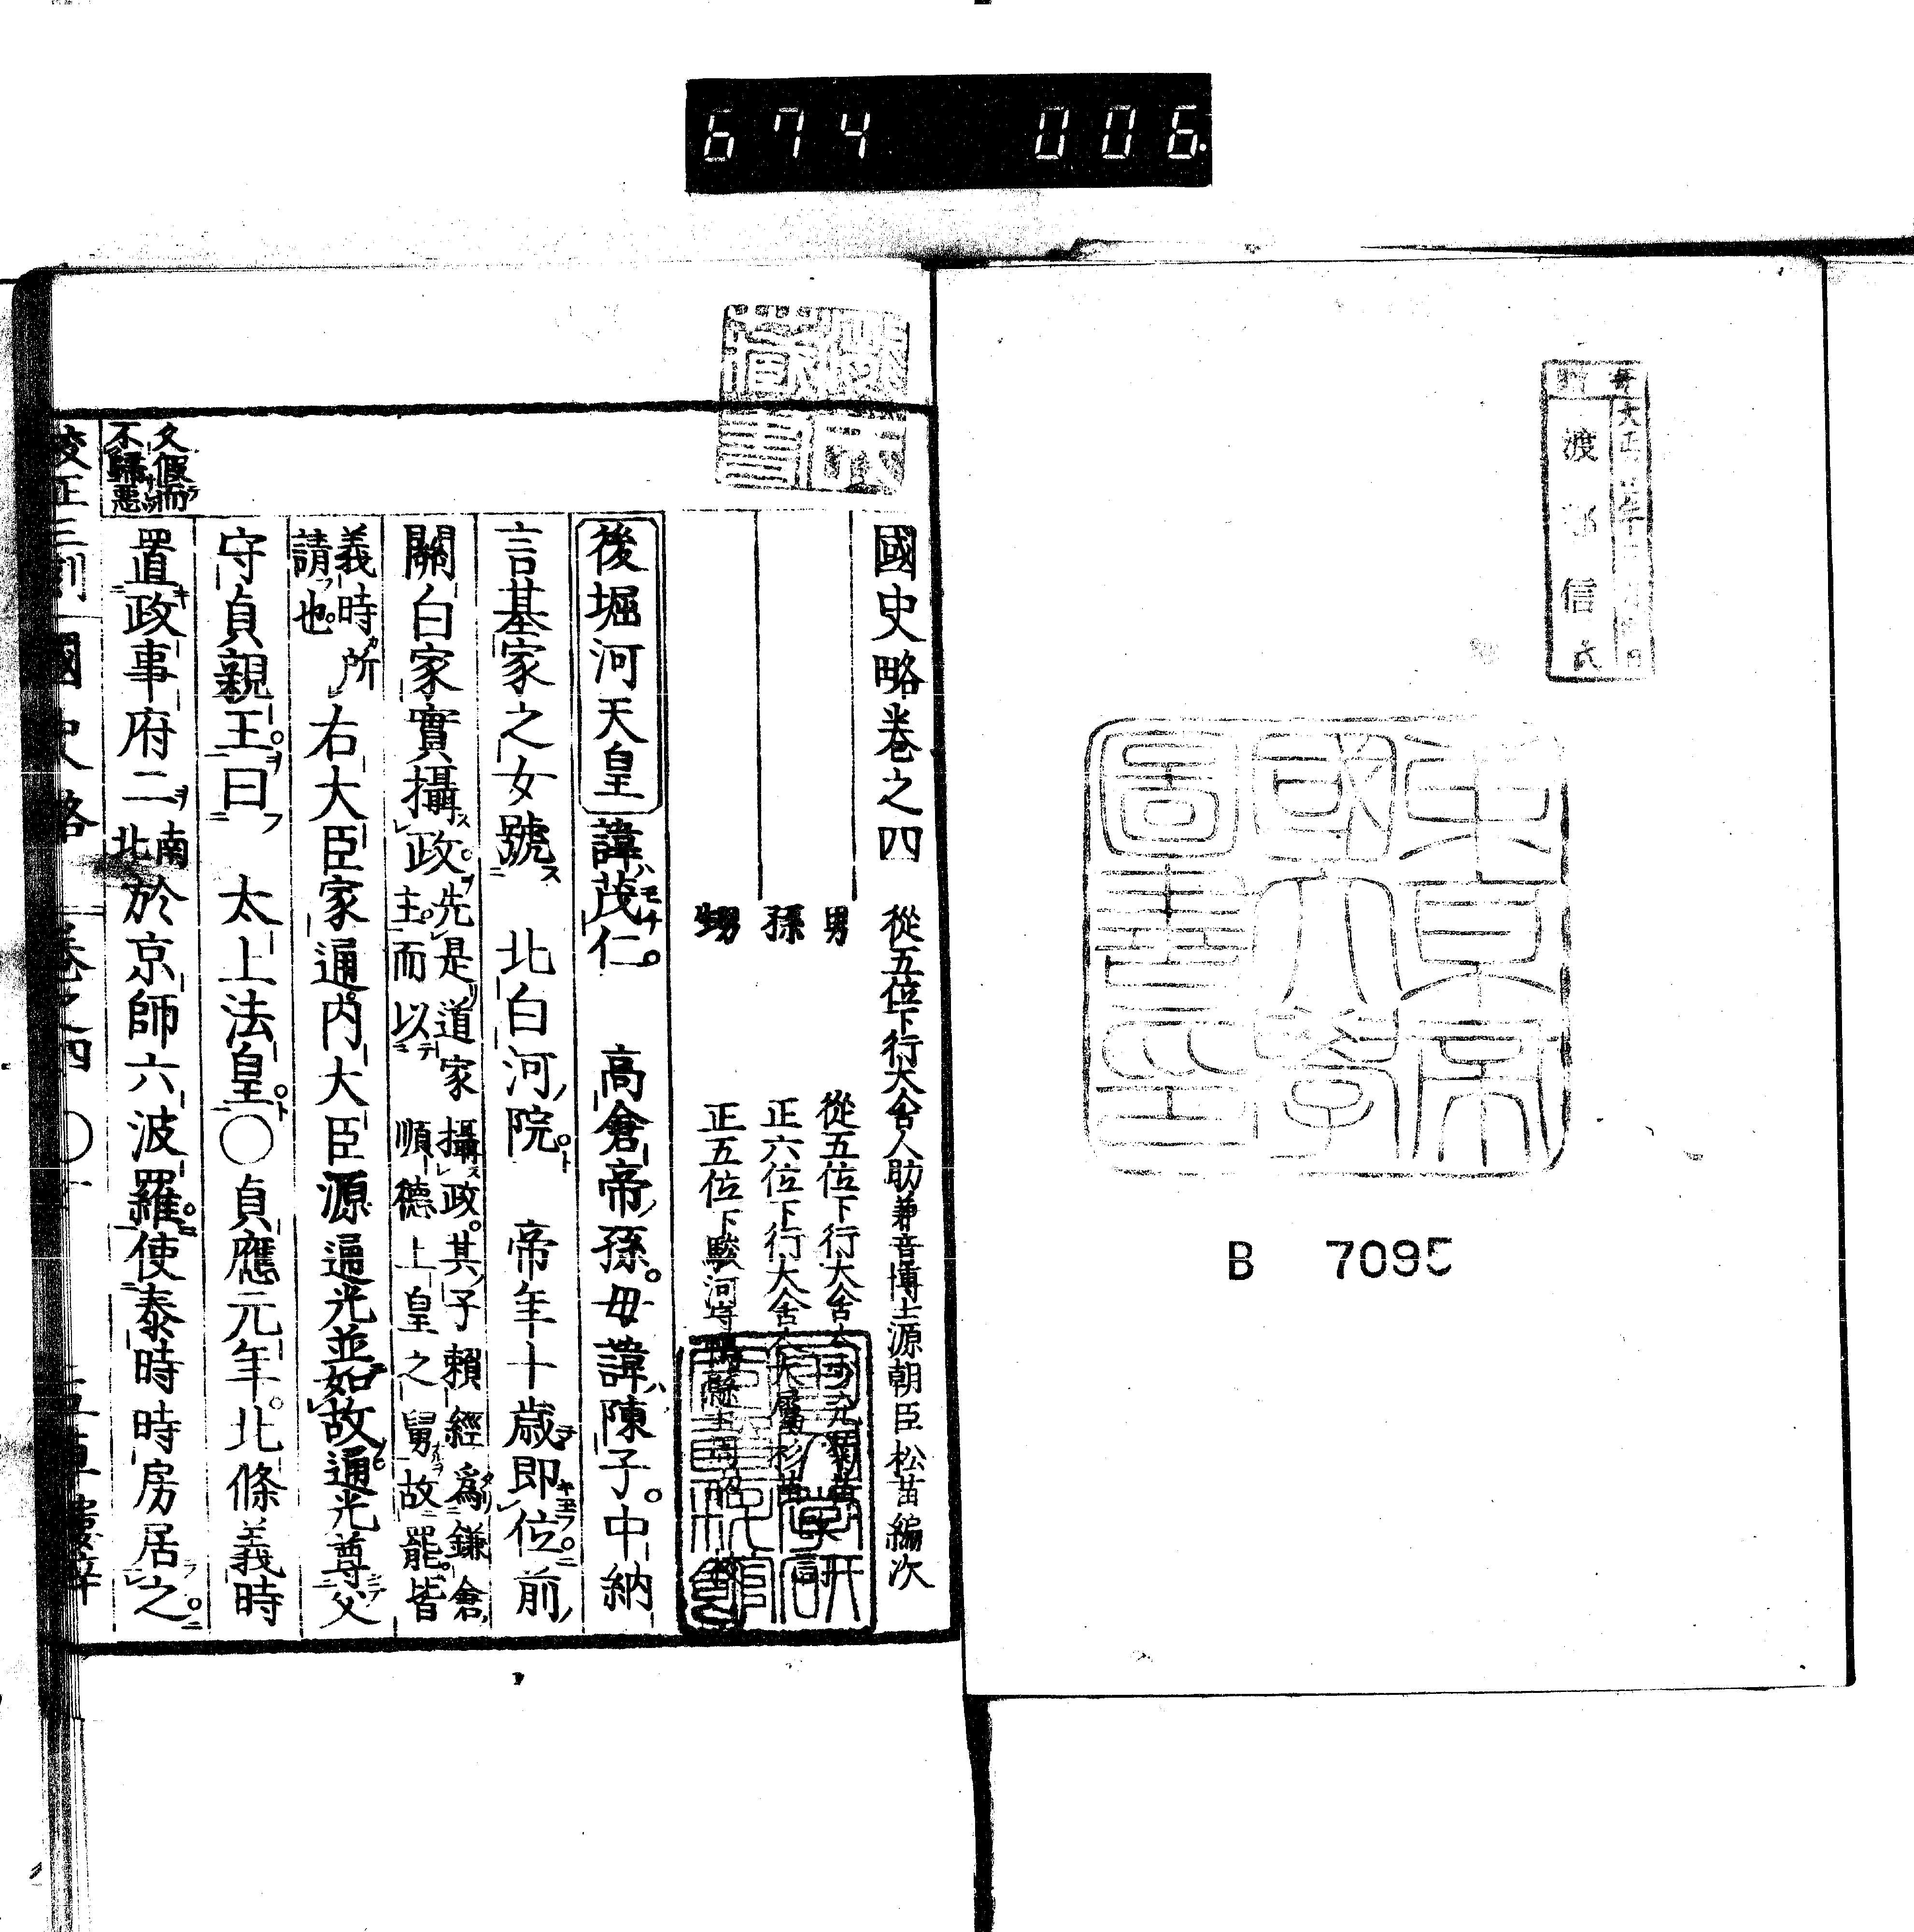 674 006
渡部信氏
東京帝國大學圖書印
B 7095
國史略卷之四
從五位下行大舍人助兼音博士源朝臣松苗編次
男
從五位下行大舍
孫
正六位下行大舍人大屬杉苗
甥
正五位下駿河守鴨縣主
後堀河天皇諱茂仁。高倉帝孫。母諱陳子。中納
言基家之女號北白河院。帝年十歳即位前
關白家實攝政。先是道家攝政。其子賴經爲鎌倉主。而以順德上皇之舅故罷。皆
義時所請也。右大臣家通内大臣源通光並如故通光尊父
守貞親王。曰太上法皇。〇貞應元年。北條義時
置政事府二南北於京師六波羅。使泰時時房居之。
久假而不歸惡
校正三刻 國史略 卷之四 〇一